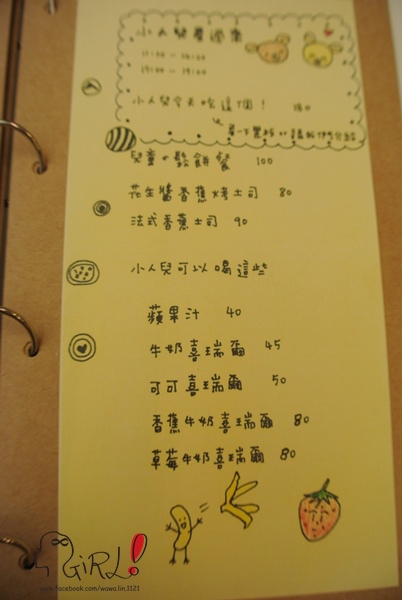 小人兒
小人兒今天吃這個！
兒童の鬆餅餐 100
花生醬香蕉烤土司 80
法式香蕉土司 90
小人兒可以喝這些
蘋果汁 40
牛奶喜瑞爾 45
可可喜瑞爾 50
香蕉牛奶喜瑞爾 80
草莓牛奶喜瑞爾 80
GiRL!
www.facebook.com/wawa.lin.3121